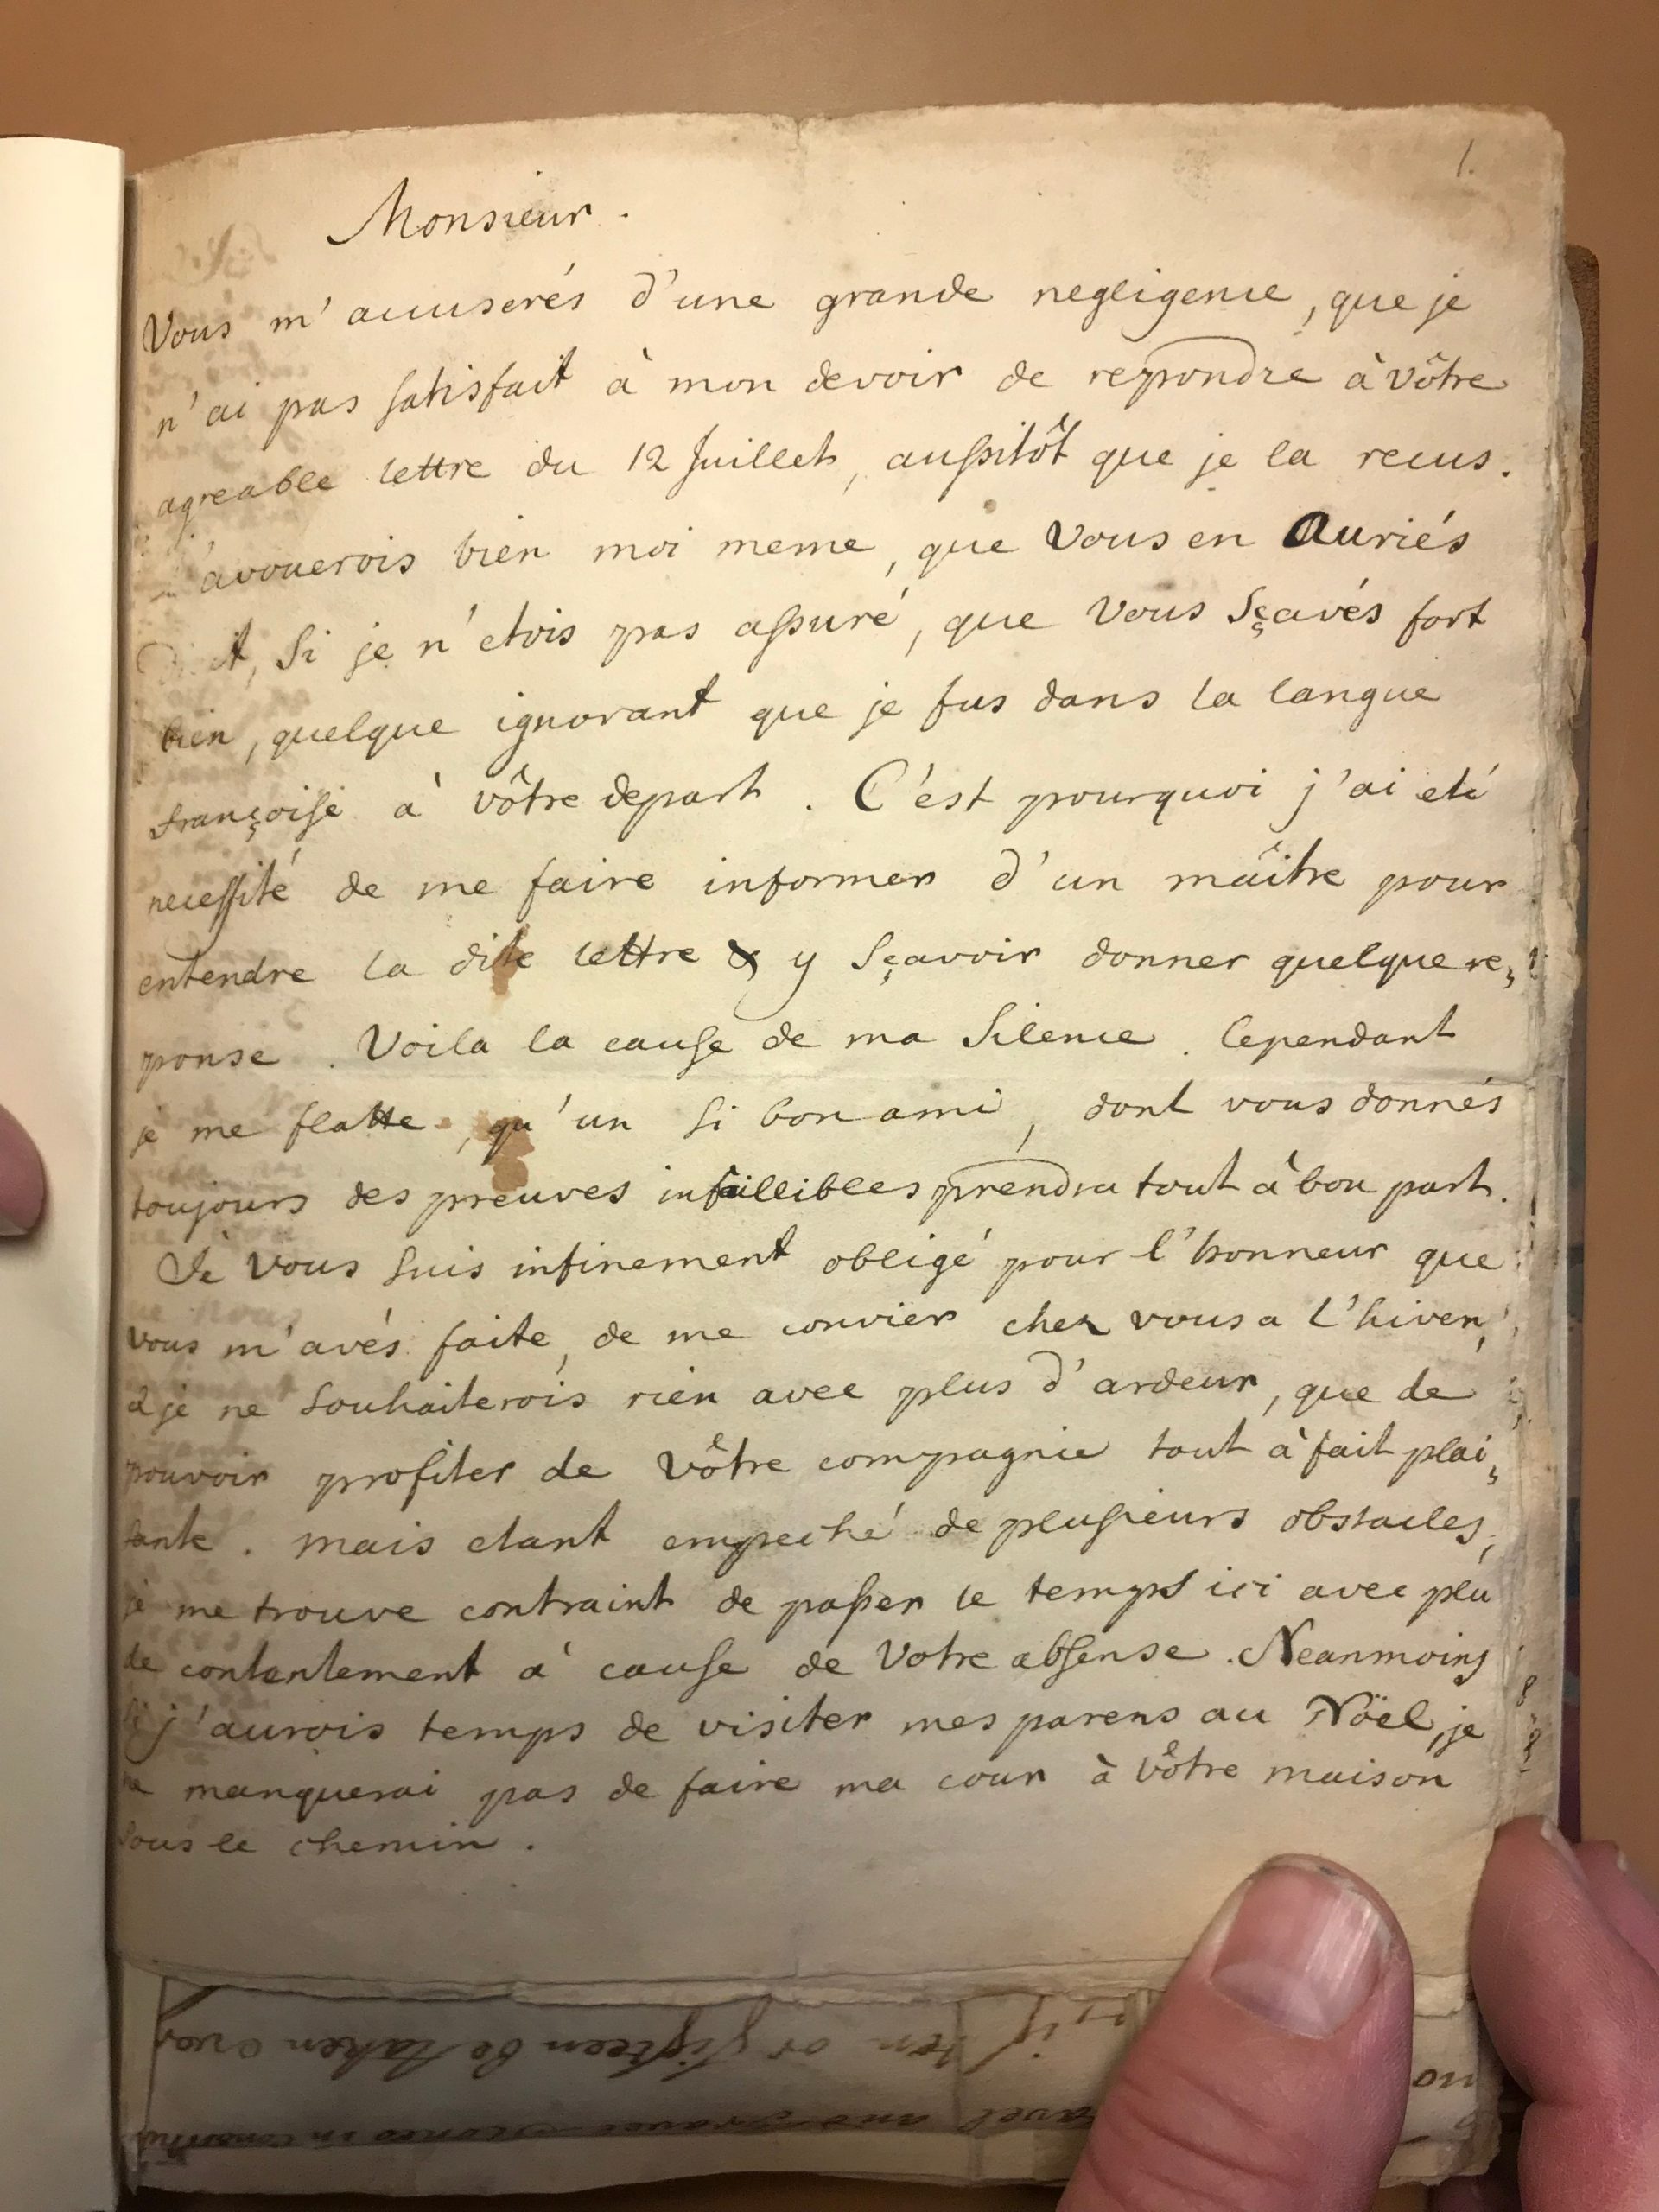 1.
Monsieur.
Vous m'accuserés d'une grande negligence, que je
n'ai pas satisfait à mon devoir de repondre à vôtre
agreable lettre du 12 Juillet, aussitôt que je la recus.
avouerois bien moi meme, que Vous en Auriés
Si je n'etois pas assuré, que Vous Sçavés fort
bien, quelque ignorant que je fus dans la langue
françoise à vôtre depart. C'est pourquoi j'ai eté
necessité de me faire informer d'un maître pour
entendre la dite lettre & y Sçavoir donner quelque re,,
ponse. Voila la cause de ma Silence. Cependant
je me flatte, qu'un si bon ami, dont vous donnés
toujours des preuves infaillibles prendra tout à bon part.
Je Vous suis infinement obligé pour l'honneur que
vous m'avés faite, de me convier chez vous a l'hiver,
& je ne souhaiterois rien avec plus d'ardeur, que de
pouvoir profiter de Vôtre compagnie tout à fait plai,,
sante. mais etant empeché de plusieurs obstacles,
je me trouve contraint de passer le temps ici avec peu
de contentement à cause de Votre absense. Neanmoins
Si j'aurois temps de visiter mes parens au Nöel, je
ne manquerai pas de faire ma cour à Vôtre maison
sous le chemin.
if ten or fifteen be taken over